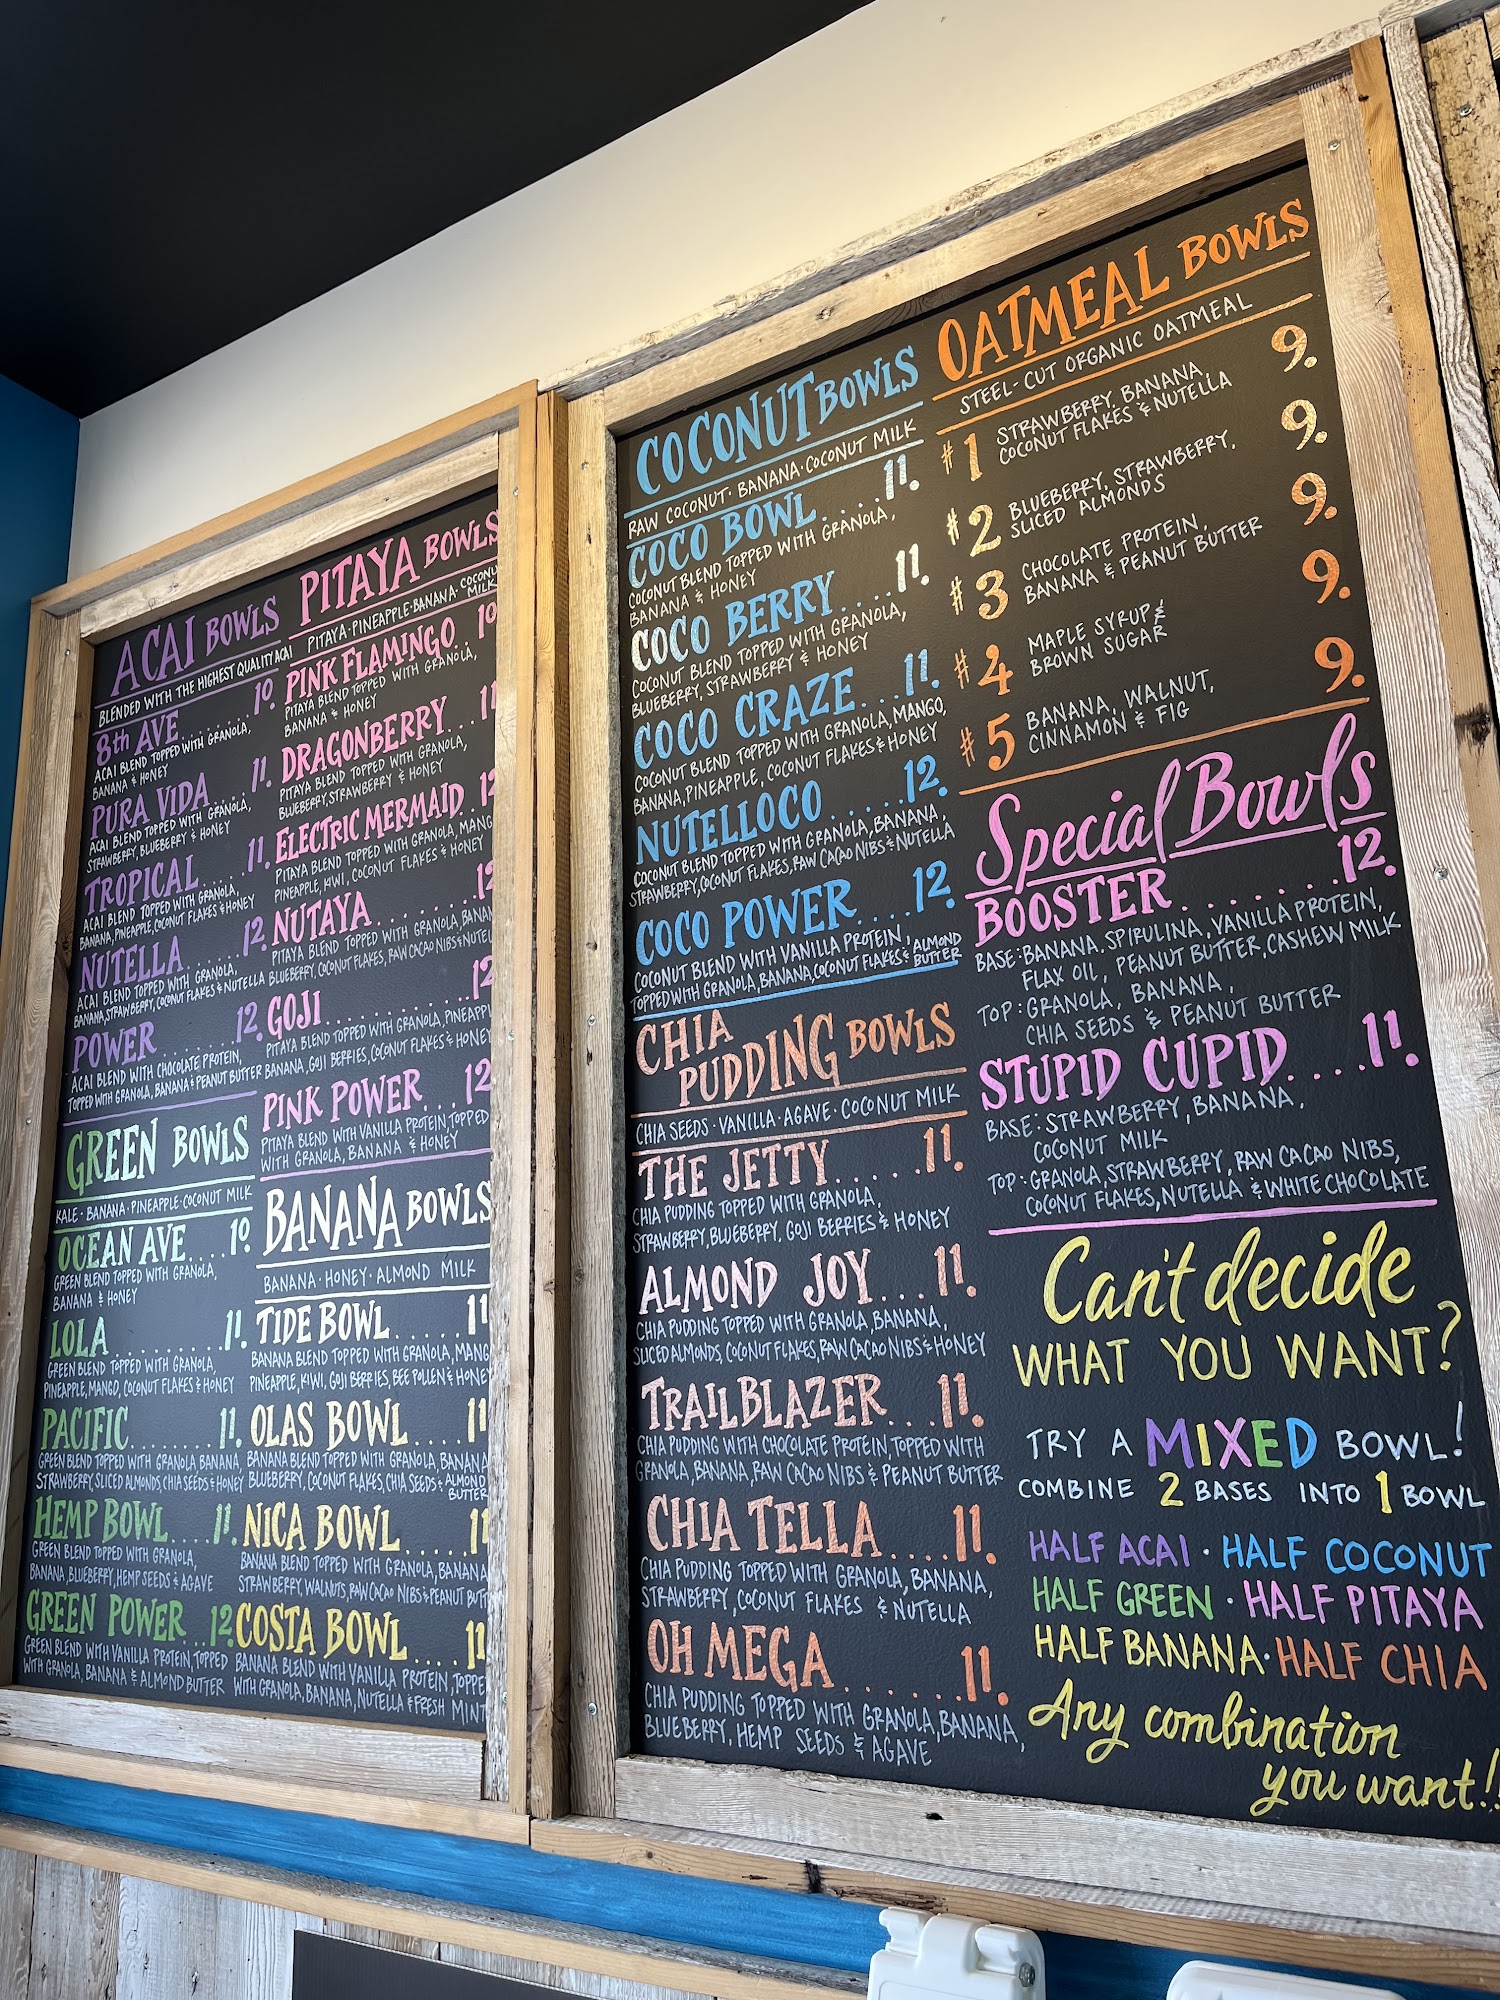 ACAI BOWLS
BLENDED WITH THE HIGHEST QUALITY ACAI
8th AVE....... 10.
ACAI BLEND TOPPED WITH GRANOLA,
BANANA & HONEY
PURA VIDA 11.
ACAI BLEND TOPPED WITH GRANOLA,
STRAWBERRY, BLUEBERRY & HONEY
TROPICAL..... 11.
ACAI BLEND TOPPED WITH GRANOLA,
BANANA, PINEAPPLE, COCONUT FLAKES & HONEY
NUTELLA 12.
ACAI BLEND TOPPED WITH GRANOLA,
BANANA, STRAWBERRY, COCONUT FLAKES & NUTELLA
POWER 12.
ACAI BLEND WITH CHOCOLATE PROTEIN,
TOPPED WITH GRANOLA, BANANA & PEANUT BUTTER
GREEN BOWLS
KALE · BANANA · PINEAPPLE · COCONUT MILK
OCEAN AVE.... 10.
GREEN BLEND TOPPED WITH GRANOLA,
BANANA & HONEY
LOLA 11.
GREEN BLEND TOPPED WITH GRANOLA,
PINEAPPLE, MANGO, COCONUT FLAKES & HONEY
PACIFIC........ 11.
GREEN BLEND TOPPED WITH GRANOLA, BANANA,
STRAWBERRY, SLICED ALMONDS, CHIA SEEDS & HONEY
HEMP BOWL.... 11.
GREEN BLEND TOPPED WITH GRANOLA,
BANANA, BLUEBERRY, HEMP SEEDS & AGAVE
GREEN POWER ..12.
GREEN BLEND WITH VANILLA PROTEIN, TOPPED
WITH GRANOLA, BANANA & ALMOND BUTTER
PITAYA BOWLS
PITAYA · PINEAPPLE · BANANA · COCONU
MILK
PINK FLAMINGO. 10
PITAYA BLEND TOPPED WITH GRANOLA,
BANANA & HONEY
DRAGONBERRY... 11
PITAYA BLEND TOPPED WITH GRANOLA,
BLUEBERRY, STRAWBERRY & HONEY
ELECTRIC MERMAID. 12
PITAYA BLEND TOPPED WITH GRANOLA, MANG
PINEAPPLE, KIWI, COCONUT FLAKES & HONEY
NUTAYA......... 12
PITAYA BLEND TOPPED WITH GRANOLA, BANAN
BLUEBERRY, COCONUT FLAKES, RAW CACAO NIBS & NUTEL
GOJI........... 12
PITAYA BLEND TOPPED WITH GRANOLA, PINEAPP
BANANA, GOJI BERRIES, COCONUT FLAKES & HONEY
PINK POWER... 12
PITAYA BLEND WITH VANILLA PROTEIN, TOPPED
WITH GRANOLA, BANANA & HONEY
BANANA BOWLS
BANANA · HONEY · ALMOND MILK
TIDE BOWL..... 11
BANANA BLEND TOPPED WITH GRANOLA, MANG
PINEAPPLE, KIWI, GOJI BERRIES, BEE POLLEN & HONEY
OLAS BOWL.... 11
BANANA BLEND TOPPED WITH GRANOLA, BANANA
BLUEBERRY, COCONUT FLAKES, CHIA SEEDS & ALMOND
BUTTER
NICA BOWL..... 11
BANANA BLEND TOPPED WITH GRANOLA, BANANA
STRAWBERRY, WALNUTS, RAW CACAO NIBS & PEANUT BUTT
COSTA BOWL.... 11
BANANA BLEND WITH VANILLA PROTEIN, TOPPE
WITH GRANOLA, BANANA, NUTELLA & FRESH MINT
COCONUT BOWLS
RAW COCONUT · BANANA · COCONUT MILK
COCO BOWL.... 11.
COCONUT BLEND TOPPED WITH GRANOLA,
BANANA & HONEY
COCO BERRY.... 11.
COCONUT BLEND TOPPED WITH GRANOLA,
BLUEBERRY, STRAWBERRY & HONEY
COCO CRAZE.... 11.
COCONUT BLEND TOPPED WITH GRANOLA, MANGO,
BANANA, PINEAPPLE, COCONUT FLAKES & HONEY
NUTELLOCO...... 12.
COCONUT BLEND TOPPED WITH GRANOLA, BANANA,
STRAWBERRY, COCONUT FLAKES, RAW CACAO NIBS & NUTELLA
COCO POWER.... 12.
COCONUT BLEND WITH VANILLA PROTEIN,
TOPPED WITH GRANOLA, BANANA, COCONUT FLAKES & ALMOND BUTTER
CHIA
PUDDING BOWLS
CHIA SEEDS · VANILLA · AGAVE · COCONUT MILK
THE JETTY..... 11.
CHIA PUDDING TOPPED WITH GRANOLA,
STRAWBERRY, BLUEBERRY, GOJI BERRIES & HONEY
ALMOND JOY.... 11.
CHIA PUDDING TOPPED WITH GRANOLA, BANANA,
SLICED ALMONDS, COCONUT FLAKES, RAW CACAO NIBS & HONEY
TRAILBLAZER... 11.
CHIA PUDDING WITH CHOCOLATE PROTEIN TOPPED WITH
GRANOLA, BANANA, RAW CACAO NIBS & PEANUT BUTTER
CHIA TELLA.... 11.
CHIA PUDDING TOPPED WITH GRANOLA, BANANA,
STRAWBERRY, COCONUT FLAKES & NUTELLA
OH MEGA....... 11.
CHIA PUDDING TOPPED WITH GRANOLA, BANANA,
BLUEBERRY, HEMP SEEDS & AGAVE
OATMEAL BOWLS
STEEL-CUT ORGANIC OATMEAL
#1 STRAWBERRY, BANANA, 9.
COCONUT FLAKES & NUTELLA
#2 BLUEBERRY, STRAWBERRY, 9.
SLICED ALMONDS
#3 CHOCOLATE PROTEIN, 9.
BANANA & PEANUT BUTTER
#4 MAPLE SYRUP & 9.
BROWN SUGAR
#5 BANANA, WALNUT, 9.
CINNAMON & FIG
Special Bowls
BOOSTER........ 12.
BASE: BANANA, SPIRULINA, VANILLA PROTEIN,
FLAX OIL, PEANUT BUTTER, CASHEW MILK
TOP: GRANOLA, BANANA,
CHIA SEEDS & PEANUT BUTTER
STUPID CUPID.... 11.
BASE: STRAWBERRY, BANANA,
COCONUT MILK
TOP: GRANOLA, STRAWBERRY, RAW CACAO NIBS,
COCONUT FLAKES, NUTELLA & WHITE CHOCOLATE
Can't decide
WHAT YOU WANT?
TRY A MIXED BOWL!
COMBINE 2 BASES INTO 1 BOWL
HALF ACAI · HALF COCONUT
HALF GREEN · HALF PITAYA
HALF BANANA · HALF CHIA
Any combination
you want!!